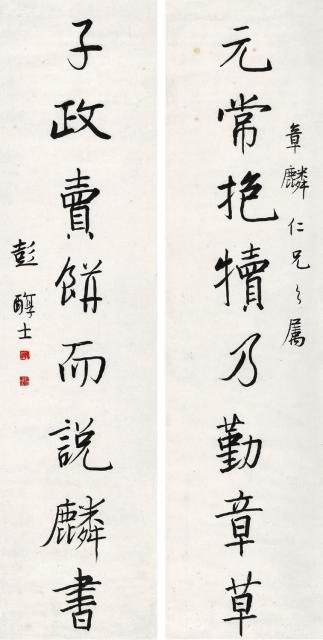 章麟仁兄之屬
元常抱犢乃勤章草
子政賣餅而說麟書
彭醇士